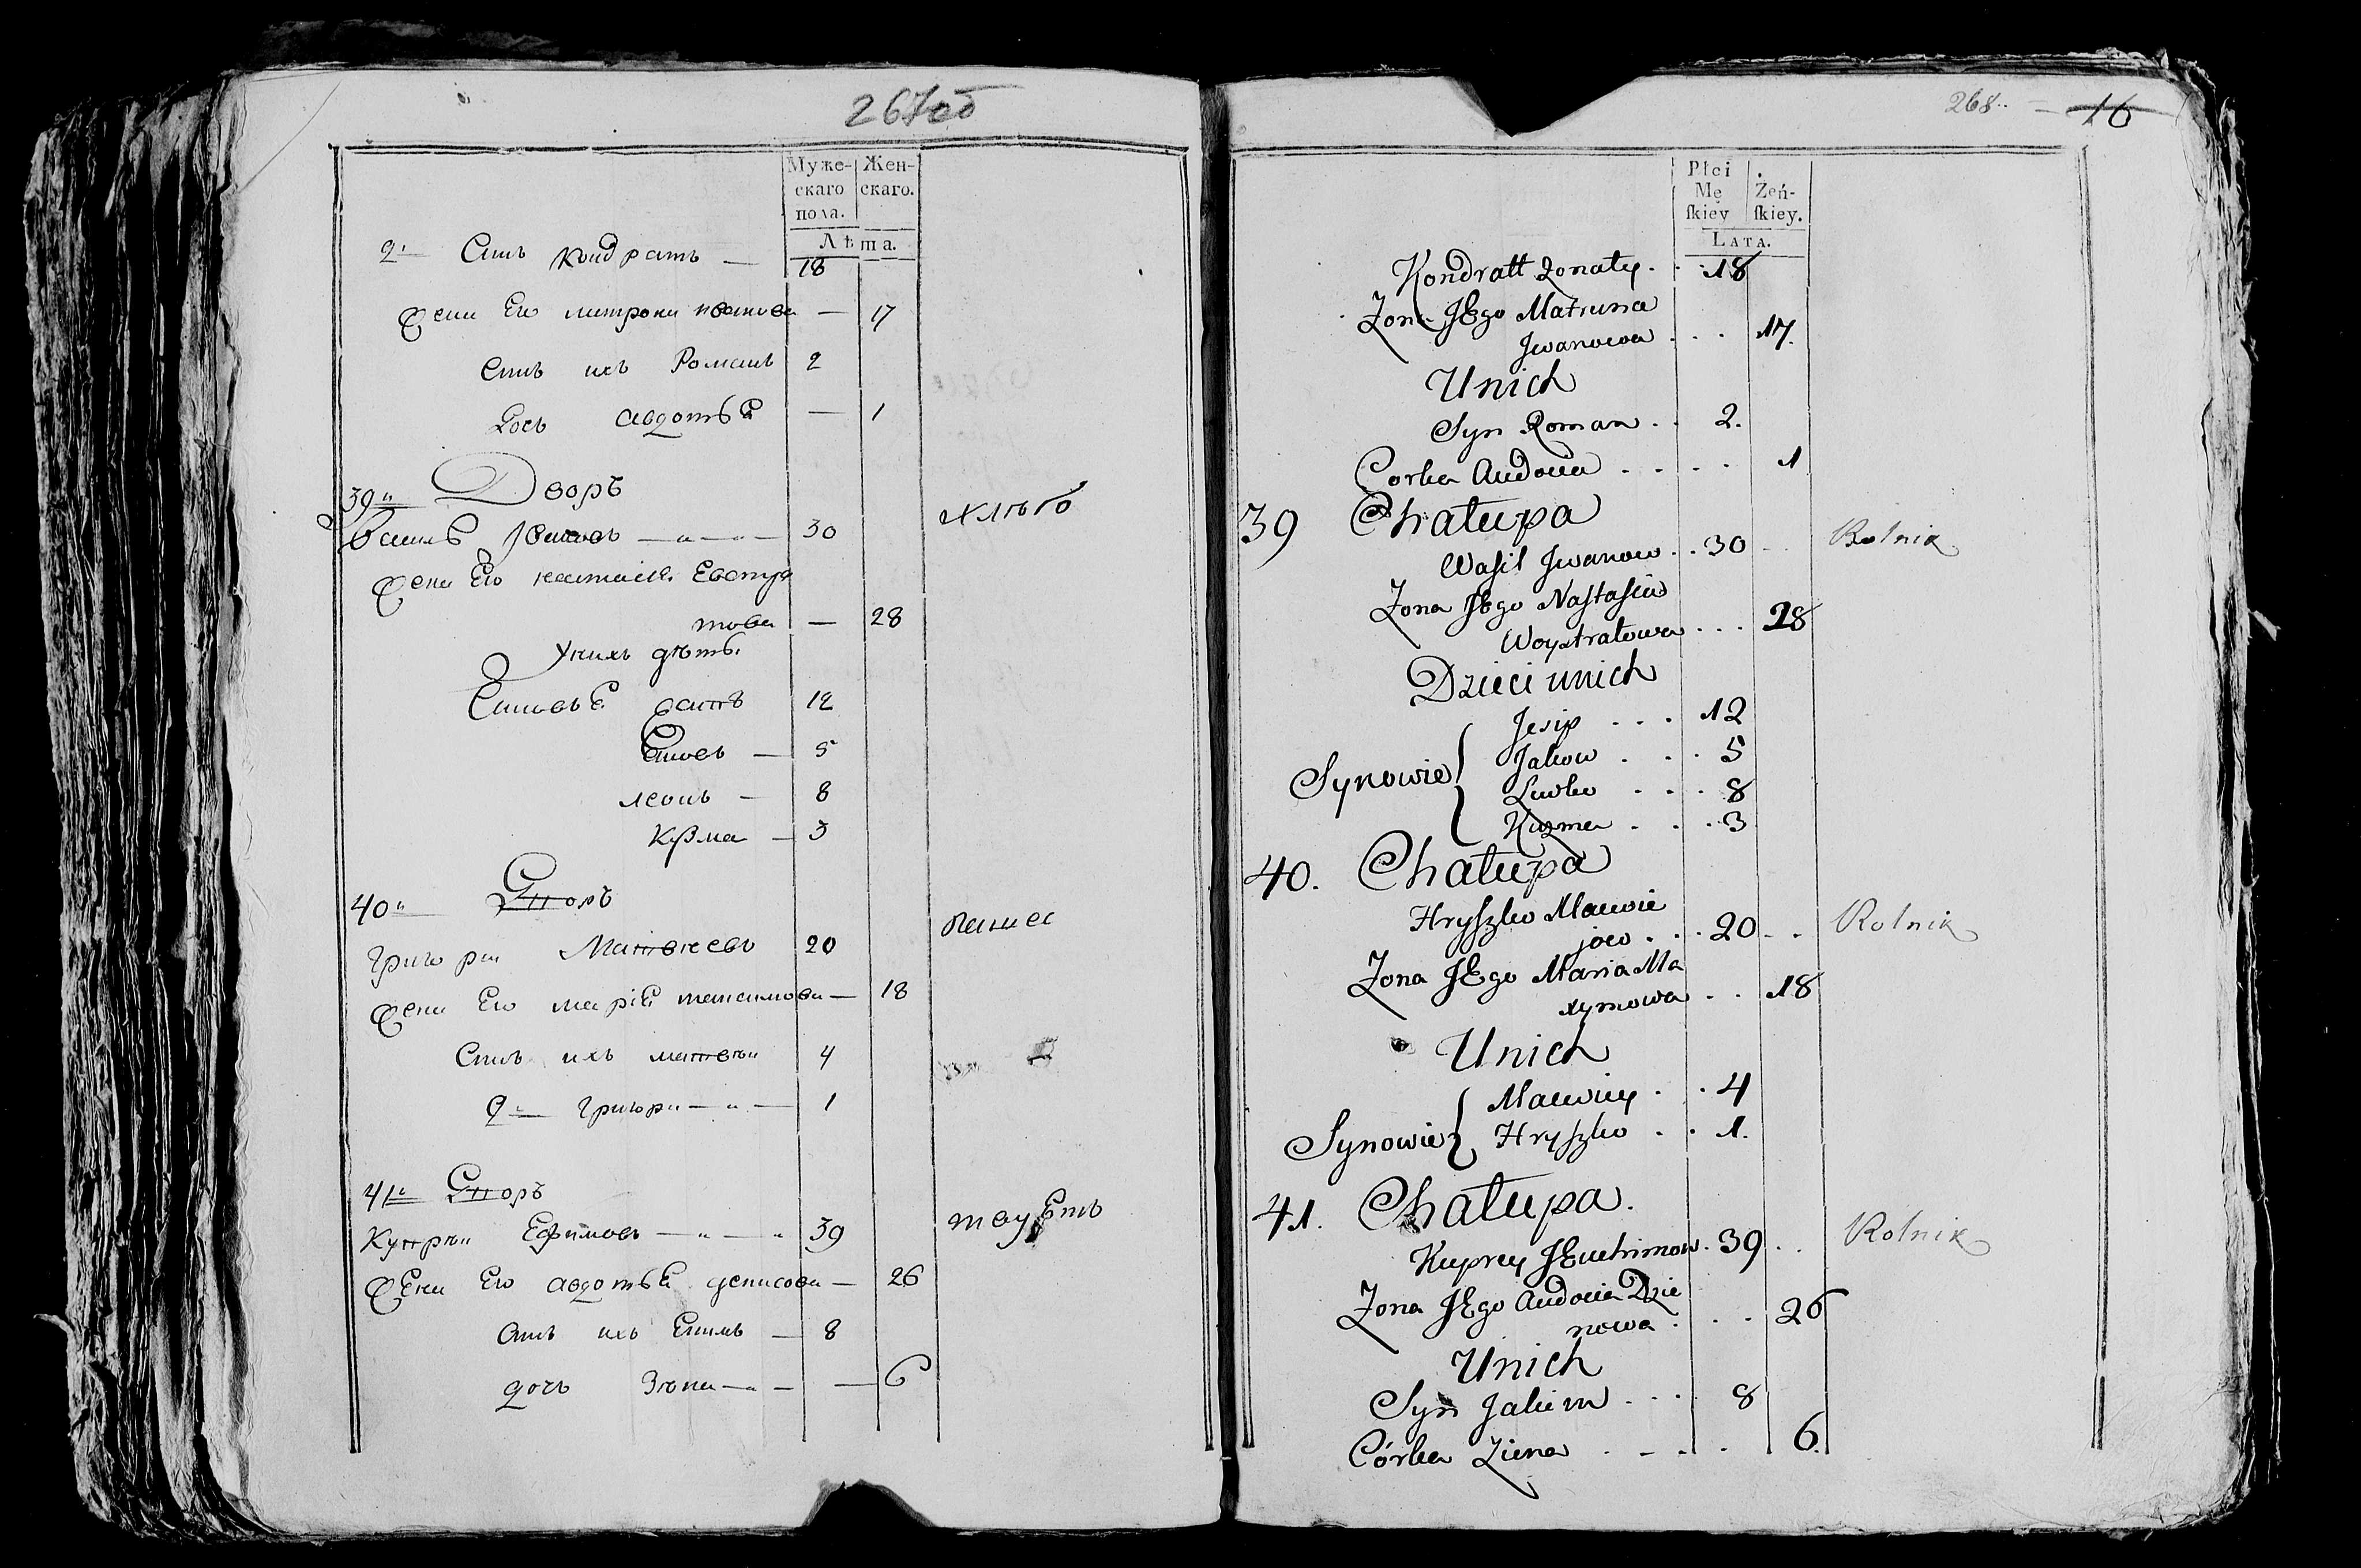 267об
Муже- Жен-
скаго скаго.
пола.
Лѣта.
2й Сынъ Кондратъ — 18
Жена Его матрона иванова — 17
Сынъ ихъ Романъ 2
Дочь авдотья — 1
39й Дворъ
Василь Ивановъ — 30
хлѣбо
Жена Его настасья Евстра
това — 28
У нихъ дѣти
Сыновья Есипъ 12
Яковъ — 5
леонъ — 8
Кузма — 3
40й Дворъ
Григори Матвѣевъ 20
пашес
Жена Его марія максимова — 18
Сынъ ихъ матвѣи 4
2й григори — 1
41й Дворъ
Купрѣи Ефимовъ — 39
твуетъ
Жена Его авдотья денисова — 26
Сынъ ихъ Екимъ — 8
дочь Зѣна — 6
268 16
Płci Żeń-
Mę skiey.
skiey
LATA.
Kondratt Żonaty . 18
Żona JEgo Matruna
Jwanowa . . . 17.
Unich
Syn Roman . . 2.
Corka Audocia . . . . 1
39 Chałupa
Wasil Jwanow . . 30 Rolnik
Żona JEgo Nastasia
Woystratowa . . . 28
Dzieci unich
Jesip . . . 12
Jakow . . . 5
Synowie
Lewko . . . 8
Kuzma . . . 3
40. Chałupa
Hryszko Maćwie
jow . . . 20 . . Rolnik
Żona JEgo Maria Ma
xymowa . . 18
Unich
Maćwiey . . 4
Synowie Hryszko . . 1.
41. Chałupa.
Kuprey JEuchimow . 39 . . Rolnik
Żona JEgo Audocia Dzie
nowa . . . 26
Unich
Syn Jakim . . . 8
Córka Ziena . . . . 6.